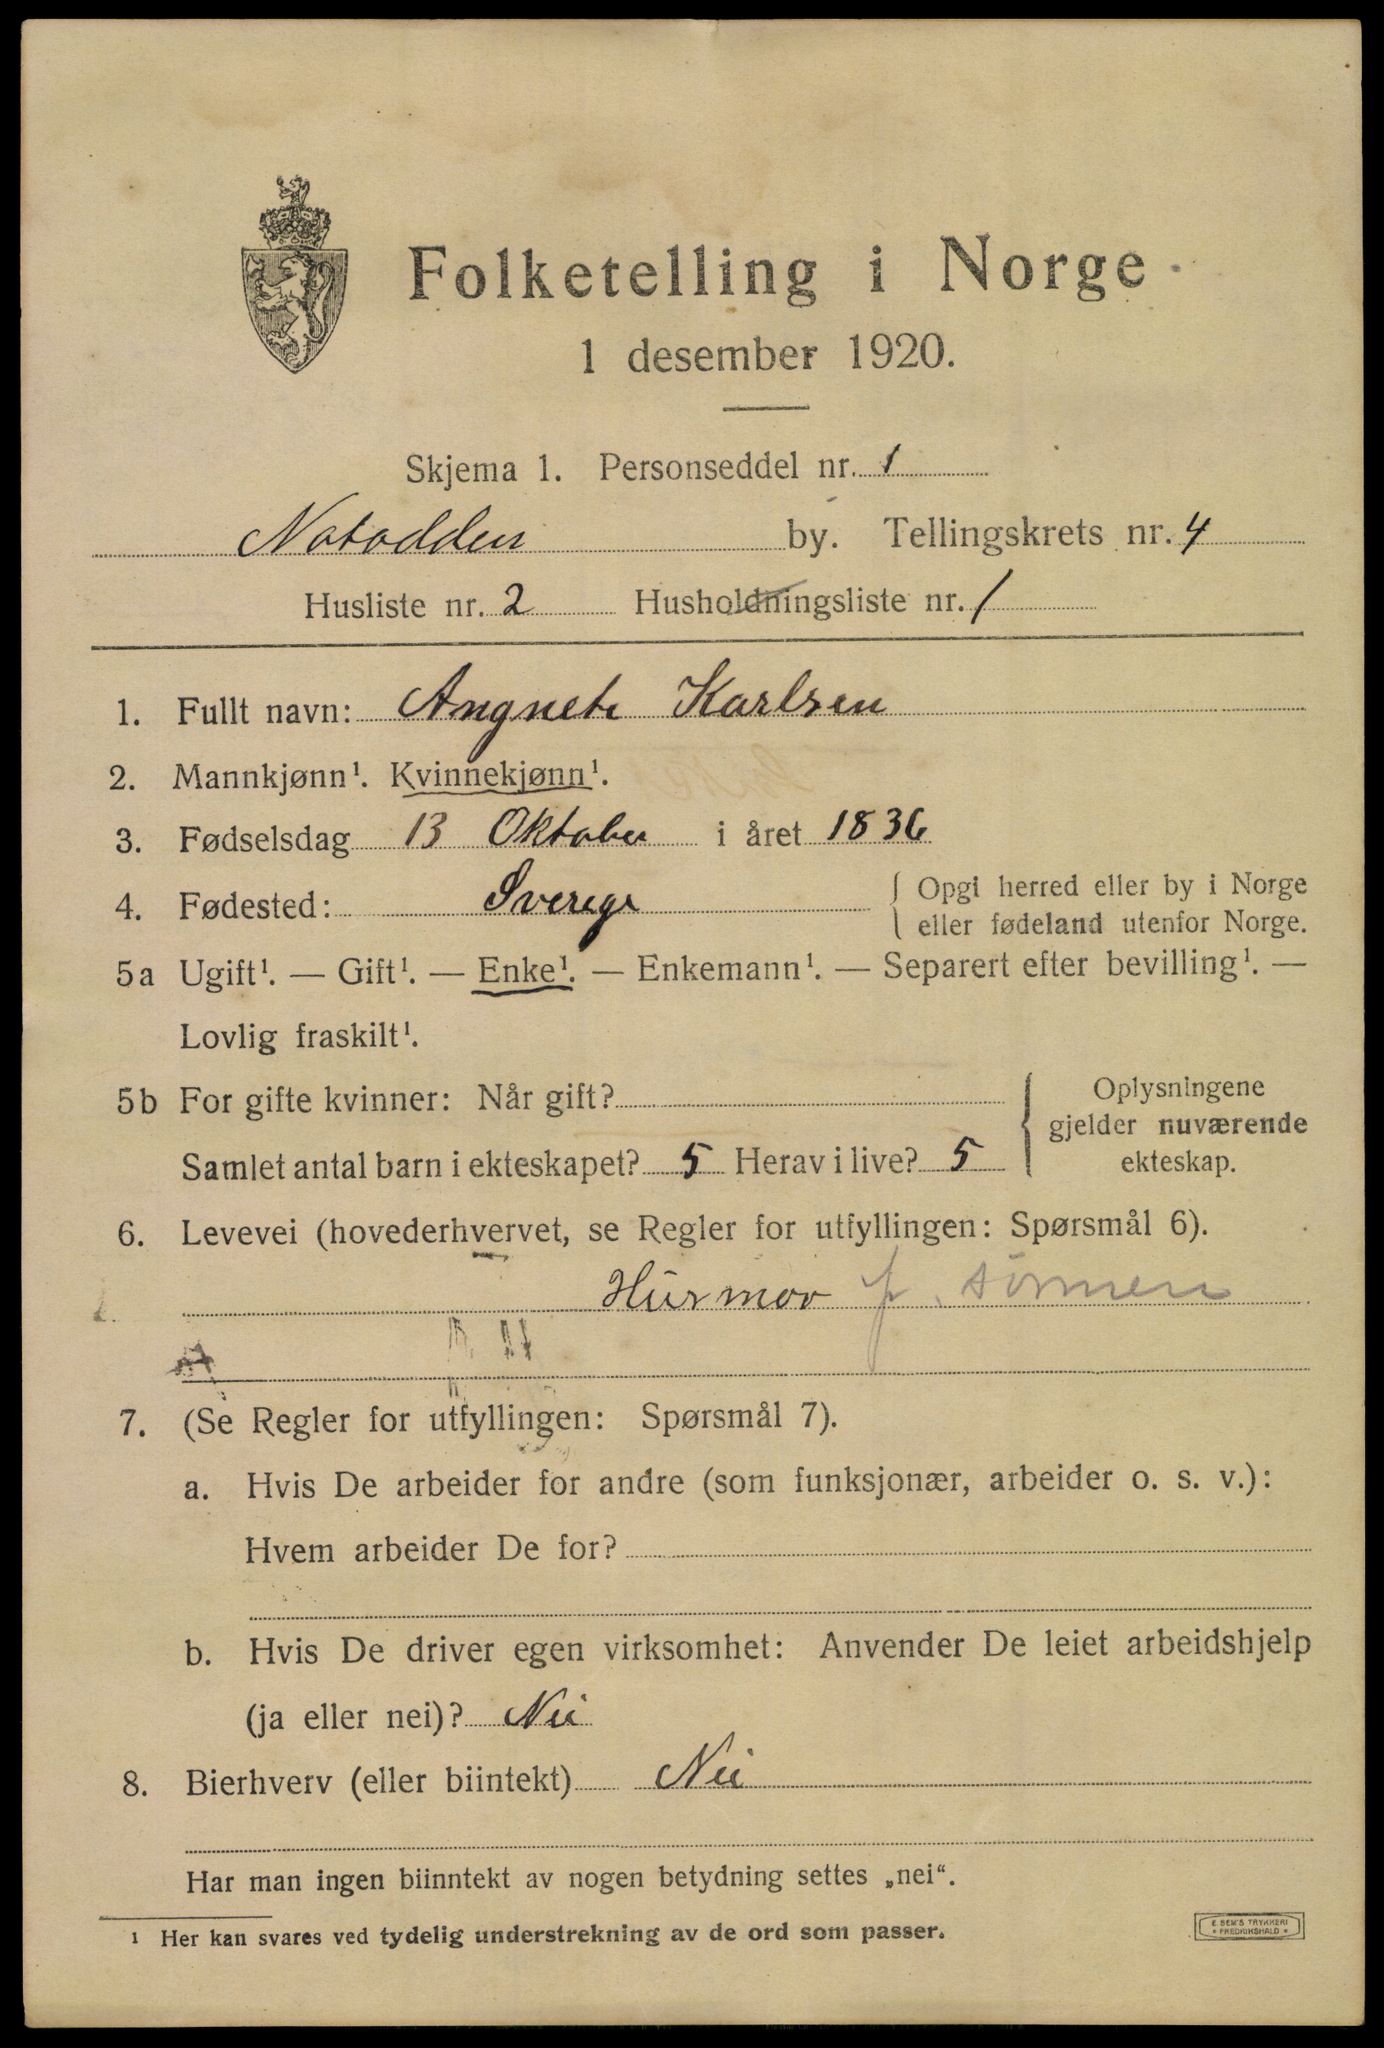 Folketelling i Norge
1 desember 1920.
Skjema 1. Personseddel nr. 1
Notodden by. Tellingskrets nr. 4
Husliste nr. 2 Husholdningsliste nr. 1
1. Fullt navn: Angnete Karlsen
2. Mannkjønn¹. Kvinnekjønn¹.
3. Fødselsdag 13 Oktober i året 1836
4. Fødested: Sverege { Opgi herred eller by i Norge
eller fødeland utenfor Norge.
5a Ugift¹. — Gift¹. — Enke¹. — Enkemann¹. — Separert efter bevilling¹. —
Lovlig fraskilt¹.
5b For gifte kvinner: Når gift?
Samlet antal barn i ekteskapet? 5 Herav i live? 5
Oplysningene
gjelder nuværende
ekteskap.
6. Levevei (hovederhvervet, se Regler for utfyllingen: Spørsmål 6).
Husmor f. sønnen
7. (Se Regler for utfyllingen: Spørsmål 7).
a. Hvis De arbeider for andre (som funksjonær, arbeider o. s. v.):
Hvem arbeider De for?
b. Hvis De driver egen virksomhet: Anvender De leiet arbeidshjelp
(ja eller nei)? Nei
8. Bierhverv (eller biintekt) Nei
Har man ingen biinntekt av nogen betydning settes „nei“.
¹ Her kan svares ved tydelig understrekning av de ord som passer.
E. SEM'S TRYKKERI
* FREDRIKSHALD *